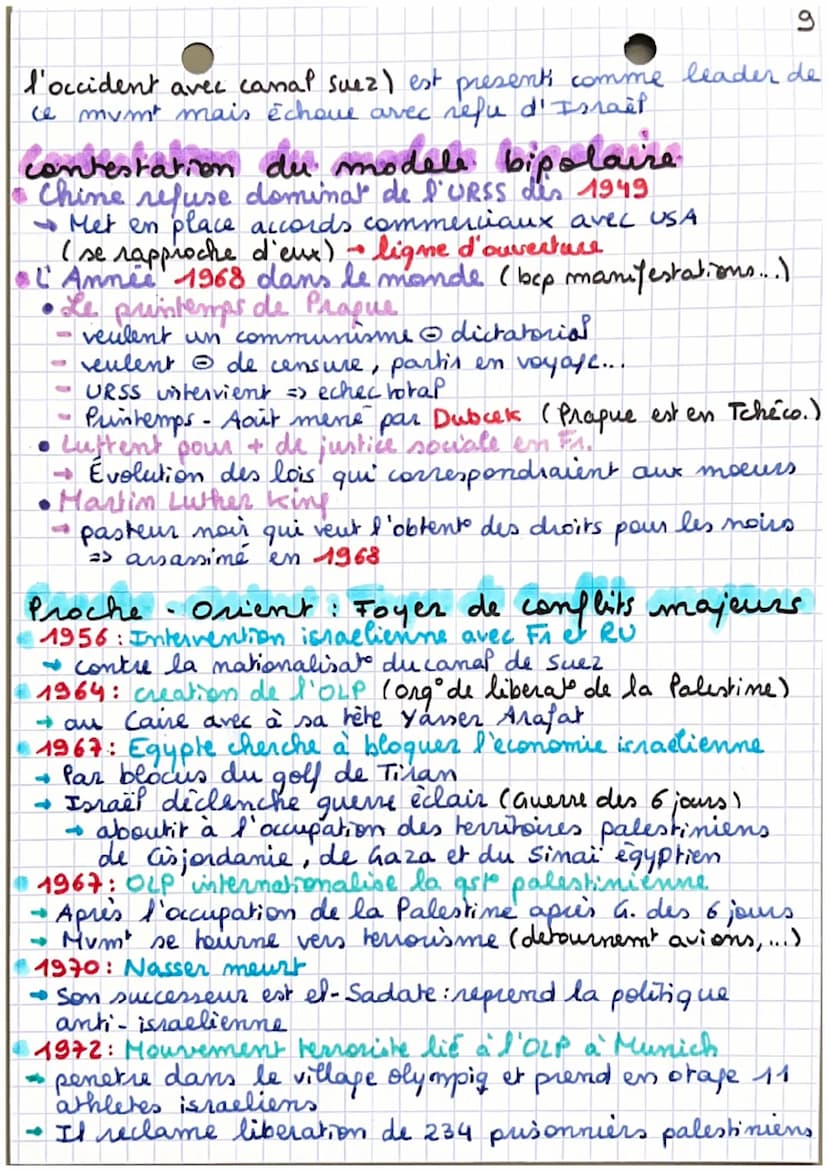 9
l'occident avec canal suez) est presenté comme leader de
ce mvmt mais échoue avec refu d'Israël
Contestation du modèle bipolaire
Chine refuse dominat° de l'URSS dès 1949
→ Met en place accords commerciaux avec USA
(se rapproche d'eux) → ligne d'ouverture
L'Année 1968 dans le monde (bcp manifestations...)
• Le printemps de Prague
- veulent un communisme ⊖ dictatorial
- veulent ⊖ de censure, partir en voyage...
- URSS intervient => echec total
- Printemps - Août mené par Dubcek (Prague est en Tchéco.)
• Luttent pour + de justice sociale en Fr.
→ Évolution des lois qui correspondraient aux moeurs
• Martin Luther King
→ pasteur noir qui veut l'obtent° des droits pour les noirs
=> assassiné en 1968
Proche - Orient : Foyer de conflits majeurs
1956 : Intervention israelienne avec Fr et RU
→ contre la nationalisat° du canal de Suez
1964 : creation de l'OLP (org° de liberat° de la Palestine)
→ au Caire avec à sa tête Yasser Arafat
1967 : Egypte cherche à bloquer l'économie israélienne
→ Par blocus du golf de Tiran
→ Israël déclenche guerre éclair (Guerre des 6 jours)
→ aboutit à l'occupation des territoires palestiniens
de Cisjordanie, de Gaza et du Sinaï égyptien
1967 : OLP internationalise la qst° palestinienne
→ Après l'occupation de la Palestine après G. des 6 jours
→ Mvmt se tourne vers terrorisme (detournemt avions,...)
1970 : Nasser meurt
→ Son successeur est el-Sadate : reprend la politique
anti-israelienne
1972 : Mouvement terroriste lié à l'OLP à Munich
→ penetre dans le village olympiq et prend en otage 11
athletes israeliens
→ Il reclame liberation de 234 prisonniers palestiniens